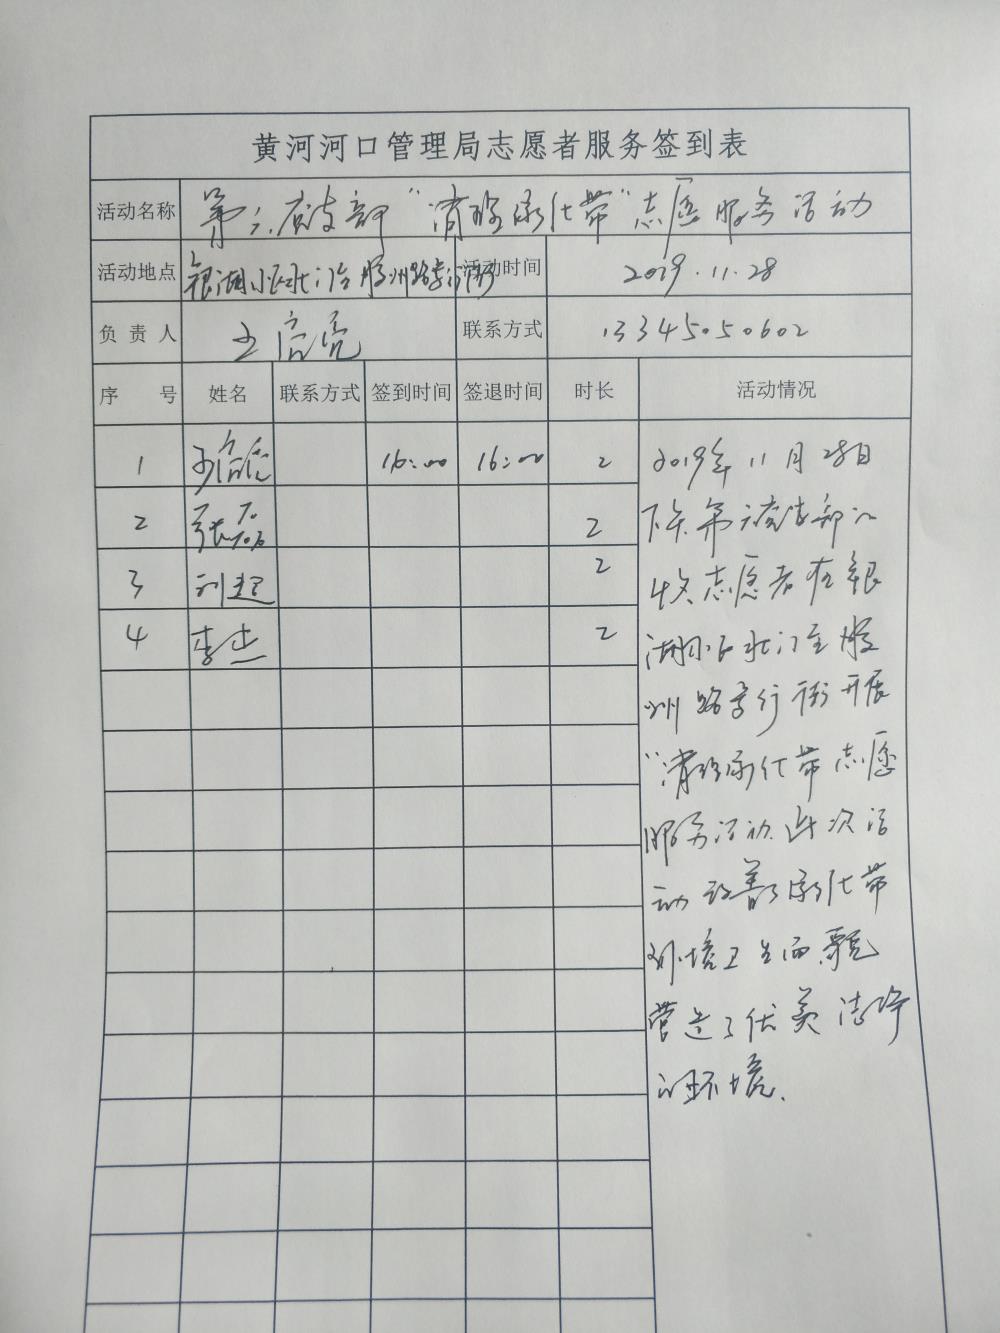 黄河河口管理局志愿者服务签到表
活动名称 第六党支部“清理绿化带”志愿服务活动
活动地点 银湖小区北门至胶州路步行街 活动时间 2019.11.28
负责人 王亮 联系方式 13345050602
序号 姓名 联系方式 签到时间 签退时间 时长 活动情况
1 16:00 16:00 2
2 张磊 2
3 刘超 2
4 李杰 2
2019年11月28日
下午第六党支部
志愿者在银
湖小区北门至胶
州路步行街开展
“清理绿化带志愿
服务活动.此次活
动改善了绿化带
环境卫生面貌
营造了优美洁净
的环境.